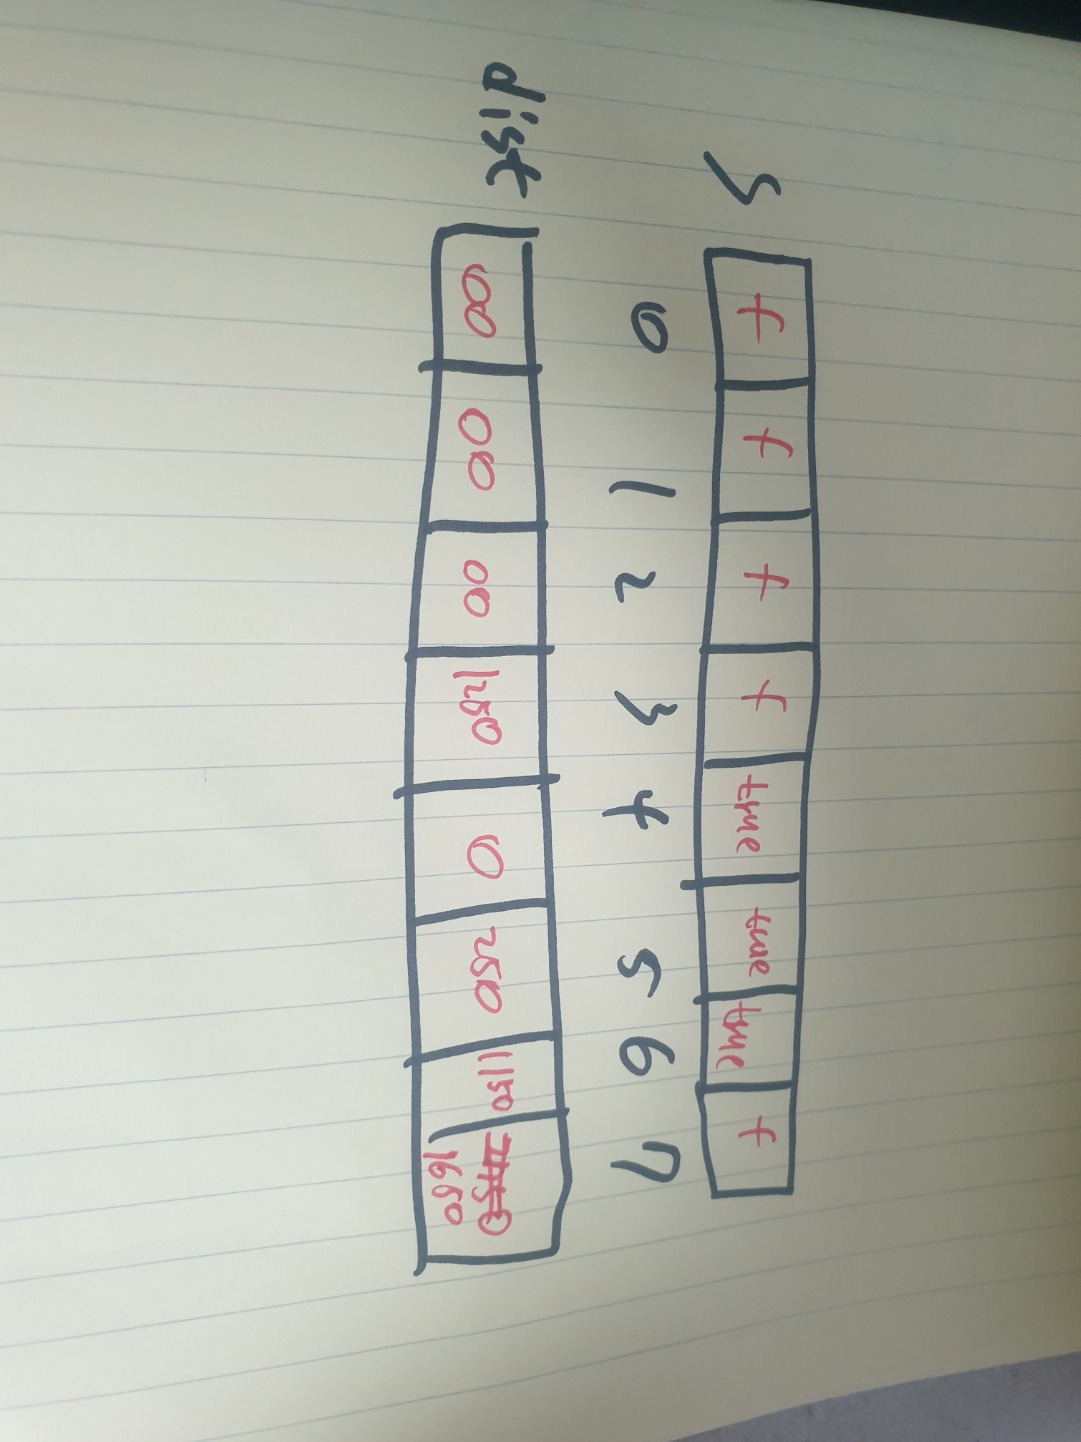 S f f f f true true true f
0 1 2 3 4 5 6 7
dist ∞ ∞ ∞ 1250 0 250 1150
1650